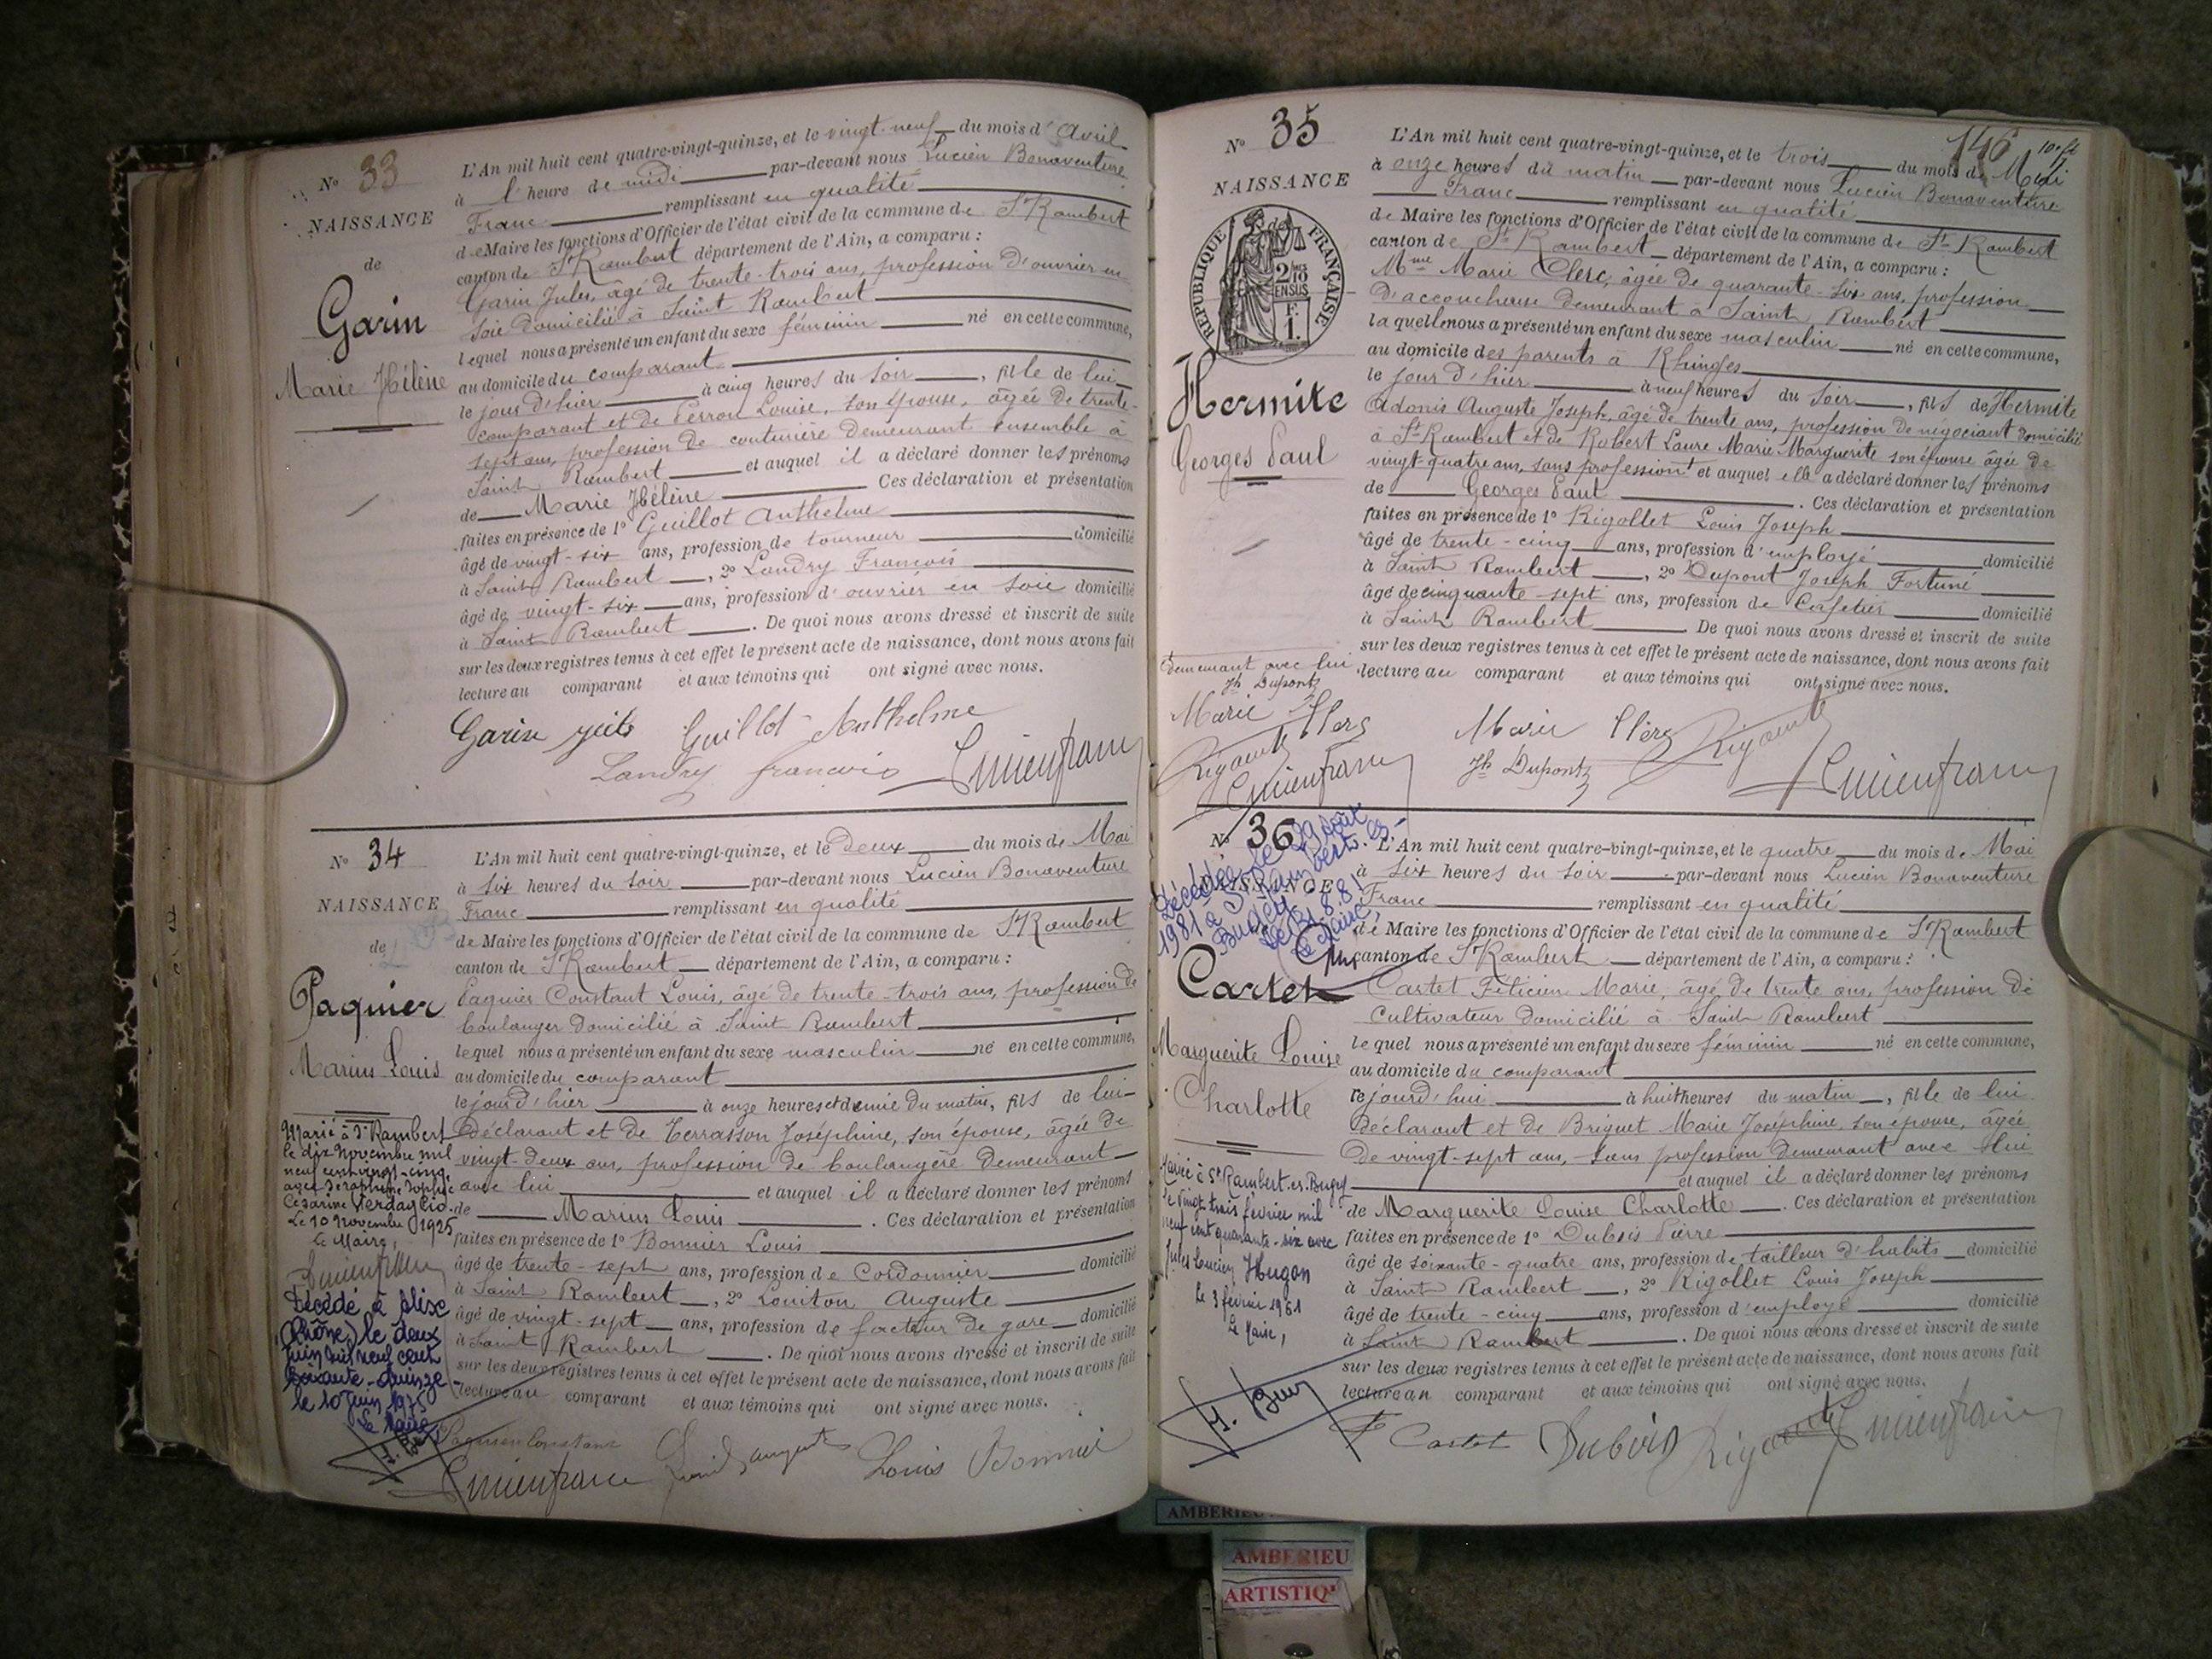 N° 33
NAISSANCE
de
Garin
Marie Hélène
L'An mil huit cent quatre-vingt-quinze, et le vingt-neuf du mois d'Avril
à l'heure de midi par-devant nous Lucien Bonaventure
Franc remplissant en qualité
de Maire les fonctions d'Officier de l'état civil de la commune de St Rambert
canton de St Rambert département de l'Ain, a comparu :
Garin Jules, âgé de trente-trois ans, profession d'ouvrier en
soie domicilié à Saint Rambert
lequel nous a présenté un enfant du sexe féminin né en cette commune,
au domicile du comparant
le jour d'hier à cinq heures du soir, fille de lui
comparant et de Perron Louise, son épouse, âgée de trente-
sept ans, profession de couturière demeurant ensemble à
Saint Rambert et auquel il a déclaré donner les prénoms
de Marie Hélène Ces déclaration et présentation
faites en présence de 1° Guillot Anthelme
âgé de vingt-six ans, profession de tourneur domicilié
à Saint Rambert, 2° Landry François
âgé de vingt-six ans, profession d'ouvrier en soie domicilié
à Saint Rambert. De quoi nous avons dressé et inscrit de suite
sur les deux registres tenus à cet effet le présent acte de naissance, dont nous avons fait
lecture au comparant et aux témoins qui ont signé avec nous.
Garin Guillot Anthelme
Landry francois Lucien franc
N° 34
NAISSANCE
de
Paquier
Marius Louis
L'An mil huit cent quatre-vingt-quinze, et le deux du mois de Mai
à six heures du soir par-devant nous Lucien Bonaventure
Franc remplissant en qualité
de Maire les fonctions d'Officier de l'état civil de la commune de St Rambert
canton de St Rambert département de l'Ain, a comparu :
Paquier Constant Louis, âgé de trente-trois ans, profession de
boulanger domicilié à Saint Rambert
lequel nous a présenté un enfant du sexe masculin né en cette commune,
au domicile du comparant
le jour d'hier à onze heures et demie du matin, fils de lui
déclarant et de Terrasson Joséphine, son épouse, âgée de
vingt-deux ans, profession de boulangère demeurant
avec lui et auquel il a déclaré donner les prénoms
de Marius Louis. Ces déclaration et présentation
faites en présence de 1° Bonnier Louis
âgé de trente-sept ans, profession de Cordonnier domicilié
à Saint Rambert, 2° Auguste
âgé de vingt-sept ans, profession de facteur de gare domicilié
à Saint Rambert. De quoi nous avons dressé et inscrit de suite
sur les deux registres tenus à cet effet le présent acte de naissance, dont nous avons fait
lecture au comparant et aux témoins qui ont signé avec nous.
Marié à St Rambert
le dix Novembre mil
neuf cent vingt-cinq
avec Séraphine Sophie
Césarine Verdaglio.
Le 10 Novembre 1925
le Maire,
Décédé à Alix
(Rhône) le deux
juin mil neuf cent
soixante-quinze
le 10 juin 1975
Le Maire
Paquier Constant
Lucien franc Louis Bonnier
146
N° 35
NAISSANCE
REPUBLIQUE FRANÇAISE
2/10 EN SUS
F. 1.
Hermite
Georges Paul
L'An mil huit cent quatre-vingt-quinze, et le trois du mois de Mai
à onze heures du matin par-devant nous Lucien Bonaventure
Franc remplissant en qualité
de Maire les fonctions d'Officier de l'état civil de la commune de St Rambert
canton de St Rambert département de l'Ain, a comparu :
Mme Marie Clerc, âgée de quarante-six ans, profession
d'accoucheuse demeurant à Saint Rambert
laquelle nous a présenté un enfant du sexe masculin né en cette commune,
au domicile des parents à Rhinges
le jour d'hier à neuf heures du soir, fils de Hermite
Adonis Auguste Joseph, âgé de trente ans, profession de négociant domicilié
à St Rambert et de Robert Laure Marie Marguerite son épouse âgée de
vingt-quatre ans, sans profession et auquel elle a déclaré donner les prénoms
de Georges Paul. Ces déclaration et présentation
faites en présence de 1° Rigollet Louis Joseph
âgé de trente-cinq ans, profession d'employé domicilié
à Saint Rambert, 2° Dupont Joseph Fortuné
âgé de cinquante-sept ans, profession de Cafetier domicilié
à Saint Rambert. De quoi nous avons dressé et inscrit de suite
sur les deux registres tenus à cet effet le présent acte de naissance, dont nous avons fait
lecture au comparant et aux témoins qui ont signé avec nous.
demeurant avec lui
Jh Dupont
Marie Clerc
Lucien franc
Marie Clerc
Jh Dupont Lucien franc
N° 36
NAISSANCE
Cartet
Marguerite Louise
Charlotte
Décédée le 29 août
1981 à St Rambert en
Bugey
Le 31.8.81
Le Maire,
L'An mil huit cent quatre-vingt-quinze, et le quatre du mois de Mai
à six heures du soir par-devant nous Lucien Bonaventure
Franc remplissant en qualité
de Maire les fonctions d'Officier de l'état civil de la commune de St Rambert
canton de St Rambert département de l'Ain, a comparu :
Cartet Félicien Marie, âgé de trente ans, profession de
cultivateur domicilié à Saint Rambert
lequel nous a présenté un enfant du sexe féminin né en cette commune,
au domicile du comparant
ce jourd'hui à huit heures du matin, fille de lui
déclarant et de Briquet Marie Joséphine, son épouse, âgée
de vingt-sept ans, sans profession demeurant avec lui
et auquel il a déclaré donner les prénoms
de Marguerite Louise Charlotte. Ces déclaration et présentation
faites en présence de 1° Dubois Pierre
âgé de soixante-quatre ans, profession de tailleur d'habits domicilié
à Saint Rambert, 2° Rigollet Louis Joseph
âgé de trente-cinq ans, profession d'employé domicilié
à Saint Rambert. De quoi nous avons dressé et inscrit de suite
sur les deux registres tenus à cet effet le présent acte de naissance, dont nous avons fait
lecture au comparant et aux témoins qui ont signé avec nous.
Mariée à St Rambert-en-Bugey
le vingt trois février mil
neuf cent quarante-six avec
Jules Lucien Hugon
Le 3 février 1961
Le Maire,
Cartet Dubois Lucien franc
AMBERIEU
AMBERIEU
ARTISTIQ